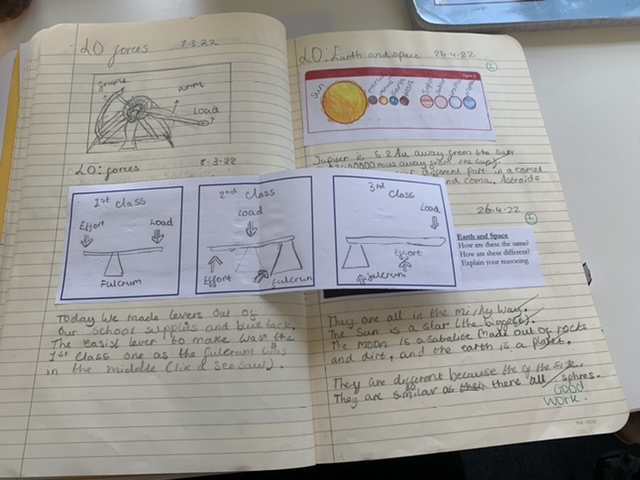 LO forces 8.3.22
frame
arm
Load
LO: forces 8.3.22
1st Class
Effort
Load
Fulcrum
2nd Class
Load
Effort
Fulcrum
3rd Class
Load
Effort
fulcrum
Today we made levers out of
our school supplies and blue tack.
The easist lever to make was the
1st class one as the fulcrum was
in the middle (like a see saw).
LO: Earth and space 26.4.22
Sun
Jupiter is 5.2 Au away from the sun
miles away from the sun
different part in a comet.
and coma. Astroids
26.4.22
Earth and Space
How are these the same?
How are these different?
Explain your reasoning.
They are all in the milky way.
The Sun is a star (the biggest).
The moon is a satalite (made out of rocks
and dirt, and the earth is a planet.
They are different because the of the size.
They are similar as there all sphres.
Good
work.